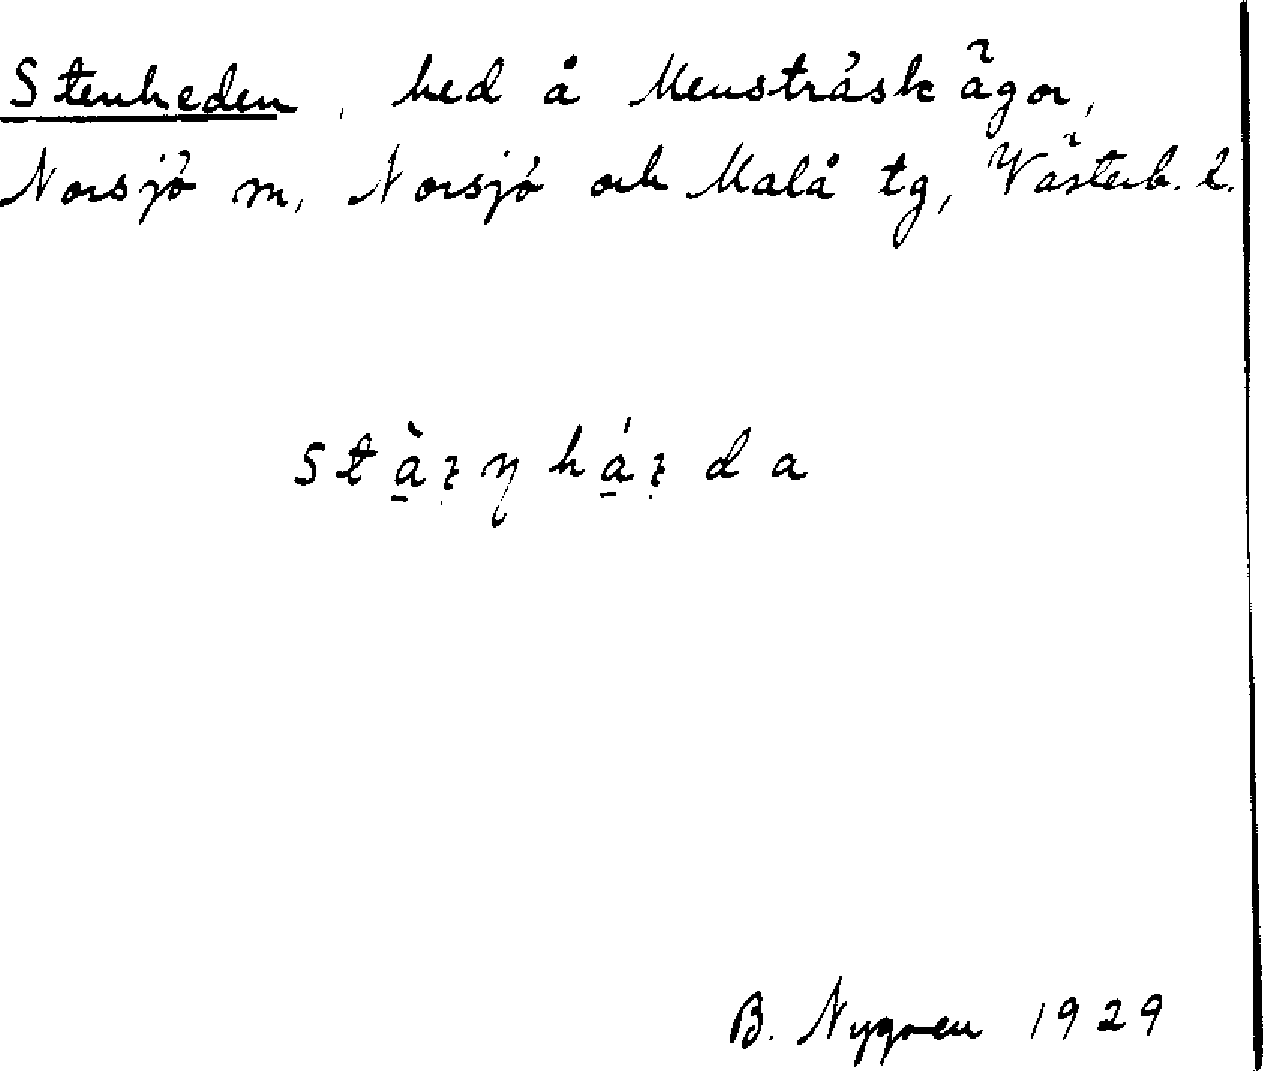 Stenheden, hed å Mensträsk ägor,
Norsjö sn, Norsjö och Malå tg, Västerb. l.
stà̱ꝛnhá̱ꝛda
B. Nygren 1929